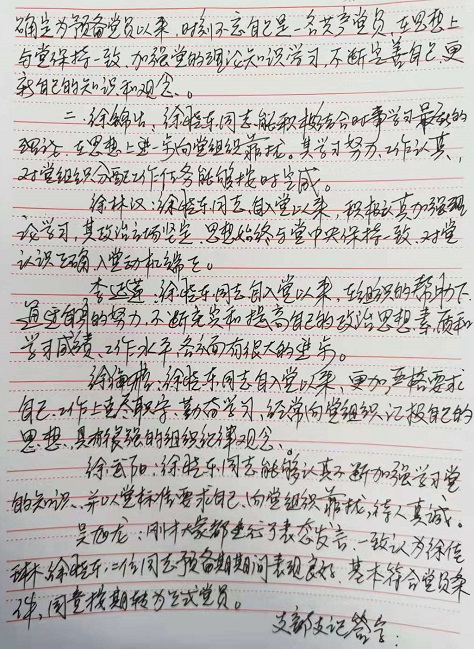 确定为预备党员以来，时刻不忘自己是一名共产党员，在思想上
与党保持一致，加强党的理论知识学习，不断完善自己，更
新自己的知识和观念。
二、徐锦出：徐晓东同志能积极结合时事学习最新的
理论，在思想上进步向党组织靠拢。其学习努力，工作认真，
对党组织分配工作任务能够按时完成。
徐林汉：徐晓东同志自入党以来，积极认真加强理
论学习，其政治立场坚定，思想始终与党中央保持一致，对党
认识正确，入党动机端正。
李延莲：徐晓东同志自入党以来，在组织的帮助下
通过自身的努力，不断充实和提高自己的政治思想、素质和
学习成绩、工作水平，各方面有很大的进步。
徐海：徐晓东同志自入党以来，更加严格要求
自己，工作上克尽职守、勤奋学习，经常向党组织汇报自己的
思想，具有很强的组织纪律观念。
徐云阳：徐晓东同志能够认真不断加强学习党
的知识，并以党标准要求自己，向党组织靠拢，待人真诚。
吴旭龙：刚才大家都进行了表态发言，一致认为徐佳
琳、徐晓东二位同志预备期期间表现良好，基本符合党员条
件，同意按期转为正式党员。
支部支记签字：